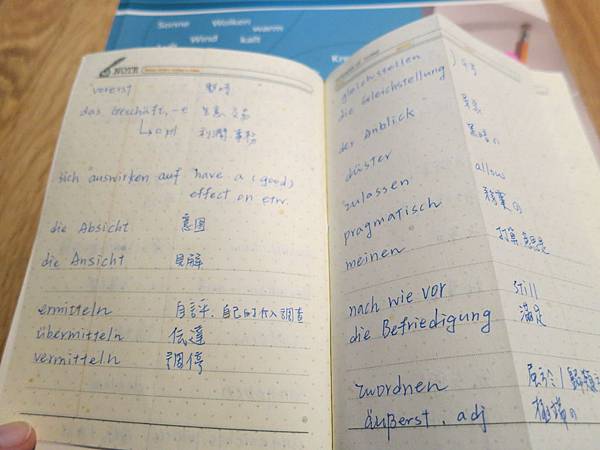 Sonne Wolken
warm
Wind kalt
NOTE
vorerst 暫時
das Geschäft, -e 生意 交易
↳ o pl 利潤.事務
sich auswirken auf have a (good)
effect on etw.
die Absicht 意图
die Ansicht 見解
ermitteln 自
übermitteln 伝達
vermitteln 調停
gleichstellen
die Gleichstellung
der Anblick
düster
zulassen allow
pragmatisch 務實の
meinen
nach wie vor still
die Befriedigung 滿足
zuordnen
äußerst, adj 極端の